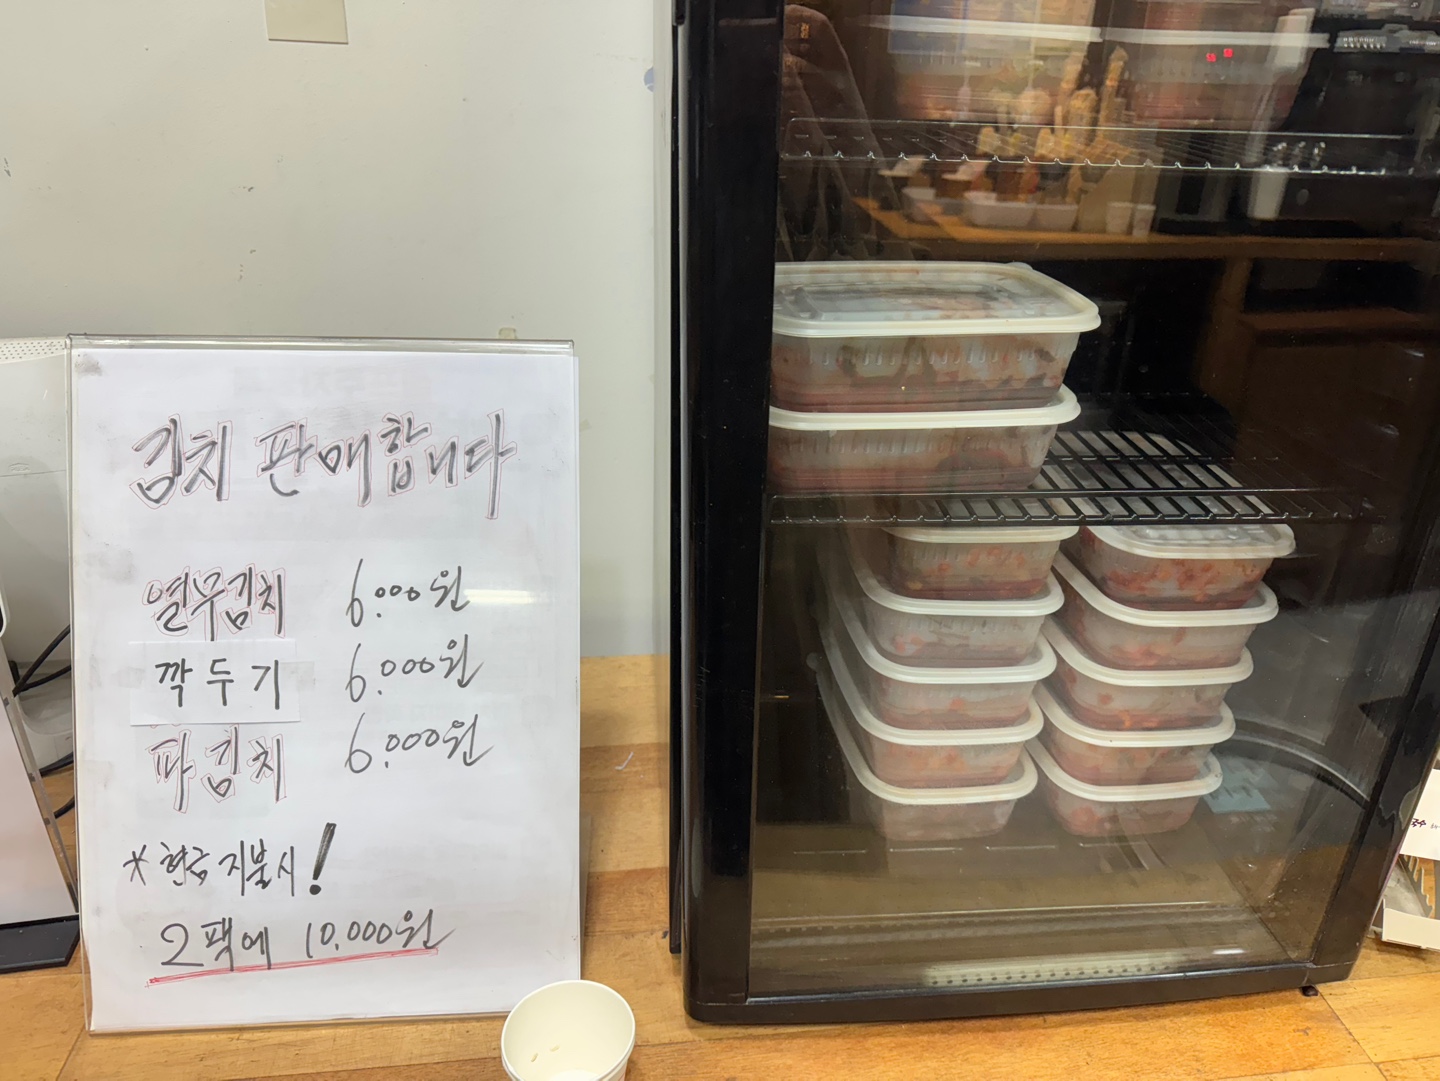 김치 판매합니다
열무김치 6.000원
깍두기 6.000원
파김치 6.000원
* 현금 지불시!
2팩에 10.000원